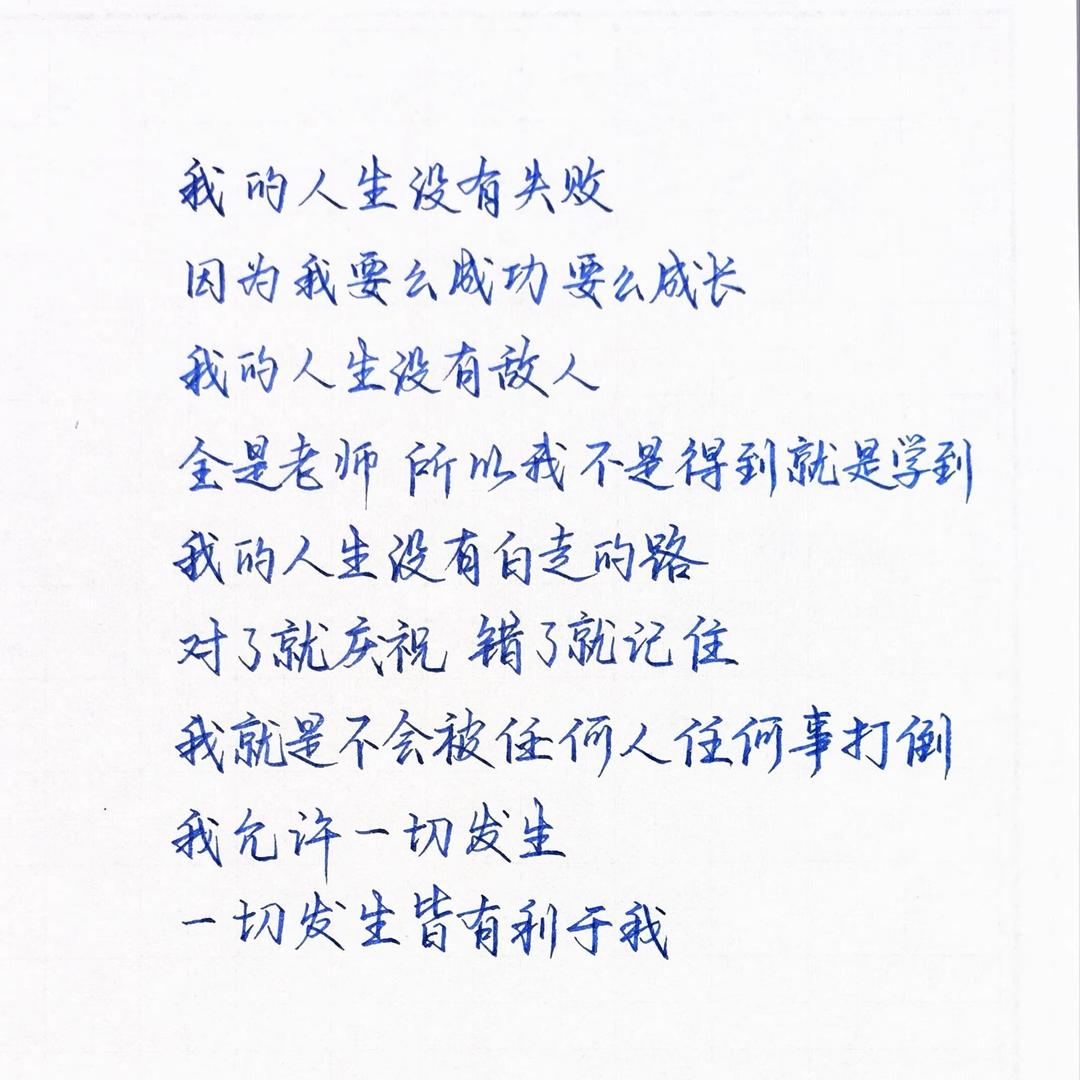 我的人生没有失败
因为我要么成功 要么成长
我的人生没有敌人
全是老师 所以我不是得到就是学到
我的人生没有白走的路
对了就庆祝 错了就记住
我就是不会被任何人任何事打倒
我允许一切发生
一切发生皆有利于我